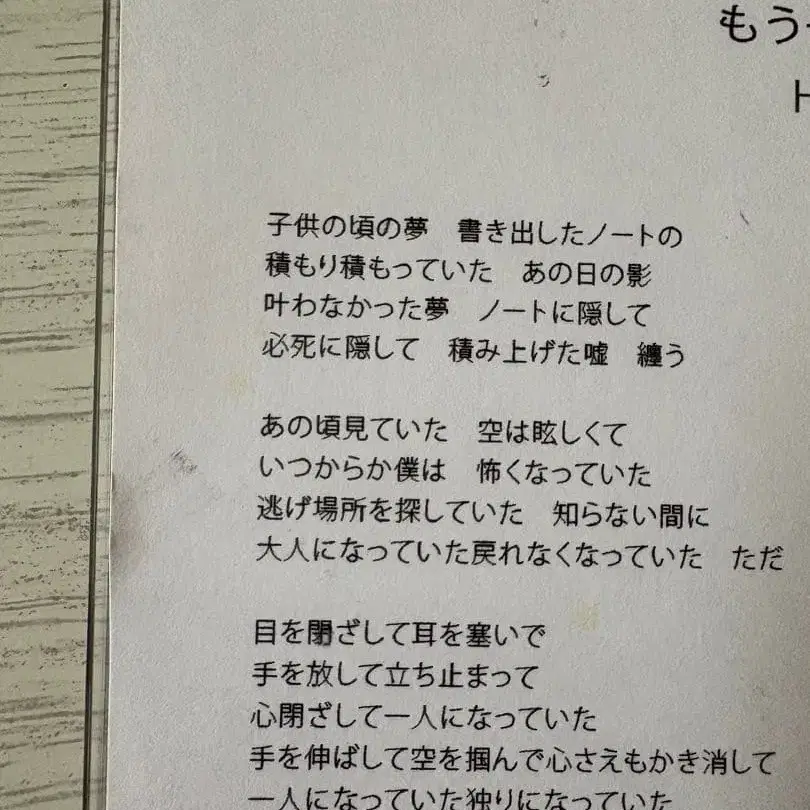 もう
H
子供の頃の夢　書き出したノートの
積もり積もっていた　あの日の影
叶わなかった夢　ノートに隠して
必死に隠して　積み上げた嘘　纏う
あの頃見ていた　空は眩しくて
いつからか僕は　怖くなっていた
逃げ場所を探していた　知らない間に
大人になっていた戻れなくなっていた　ただ
目を閉ざして耳を塞いで
手を放して立ち止まって
心閉ざして一人になっていた
手を伸ばして空を掴んで心さえもかき消して
一人になっていた独りになっていた